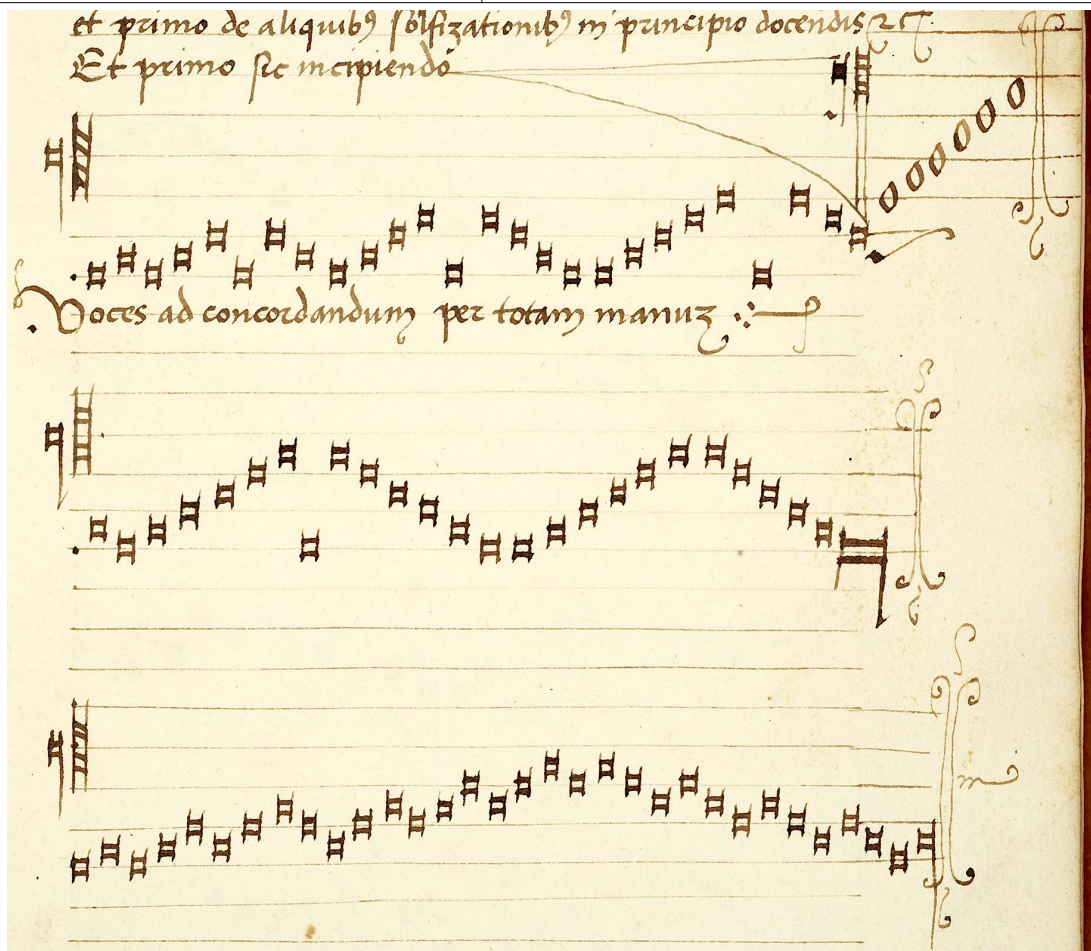 et primo de aliquibꝰ solfizationibꝰ in principio docendis
Et primo sic incipiendo
Voces ad concordandum per totam manuȝ